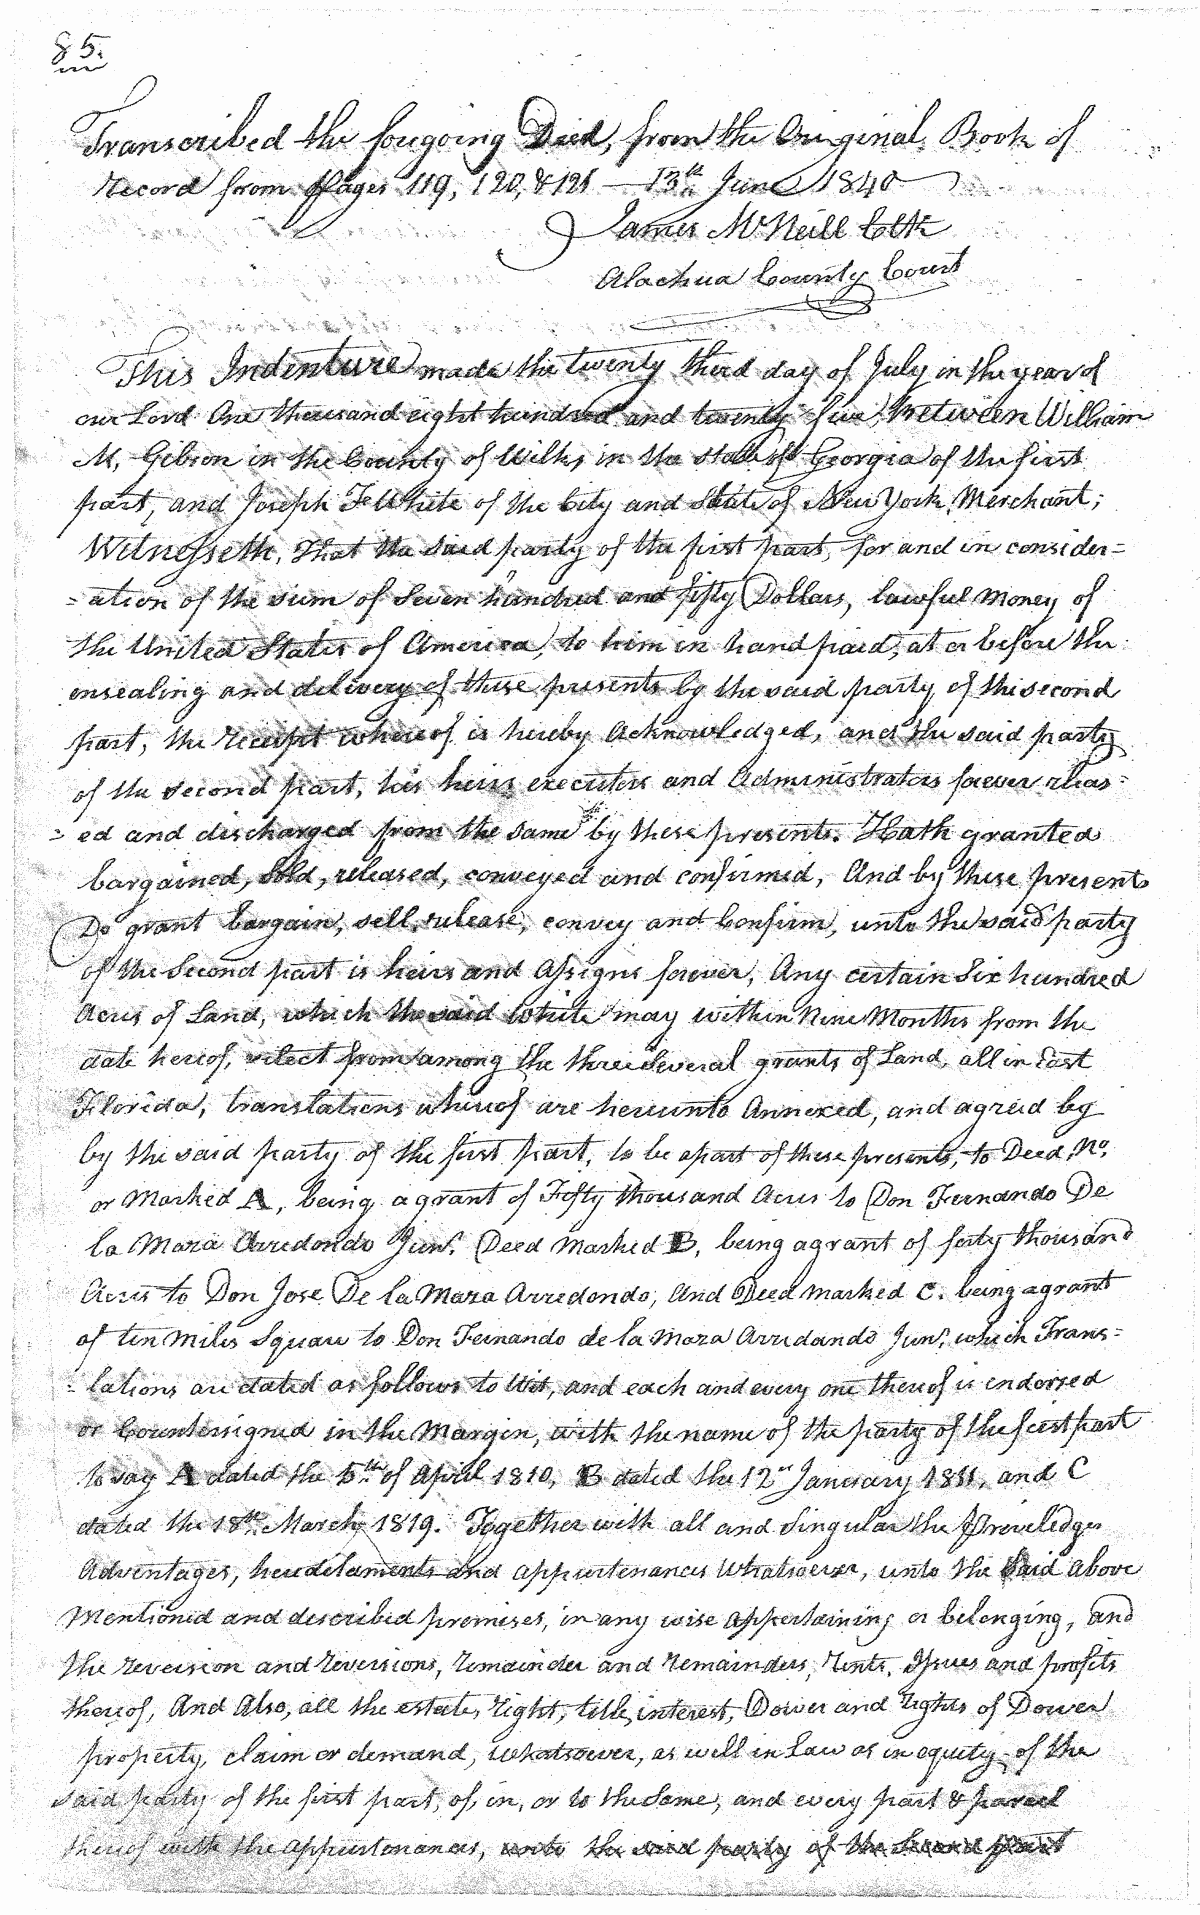 85.
Transcribed the foregoing Deed, from the Original Book of
Record from Pages 119, 120, & 121 — 13th June 1840
James McNeill Clk
Alachua County Court
This Indenture made the twenty third day of July in the year of
our Lord One thousand eight hundred and twenty five, Between William
M. Gibson in the County of Wilks in the state of Georgia of the first
part, and Joseph F White of the City and State of New York, Merchant;
Witnesseth, That the said party of the first part, for and in consider=
=ation of the sum of Seven hundred and fifty Dollars, lawful Money of
the United States of America, to him in hand paid, at or before the
ensealing and delivery of these presents by the said party of the second
part, the receipt whereof is hereby Acknowledged, and the said party
of the second part, his heirs executors and Administrators forever releas=
=ed and discharged from the same by these presents. Hath granted
bargained, Sold, released, conveyed and confirmed, And by these presents
Do grant bargain, sell, release, convey and Confirm, unto the said party
of the Second part is heirs and Assigns forever, Any certain Six hundred
Acres of Land, which the said White may within Nine Months from the
date hereof, select from among the three Several grants of Land, all in East
Florida, translations whereof are hereunto Annexed, and agreed by
by the said party of the first part, to be apart of these presents, to Deed No.
or Marked A, being a grant of Fifty thousand Acres to Don Fernando De
la Maza Arredondo Junr. Deed Marked B, being a grant of forty thousand
Acres to Don Jose De la Maza Arredondo, And Deed marked C. being a grant
of ten Miles Square to Don Fernando de la Maza Arredando Junr. which Trans=
=lations are dated as follows to Wit, and each and every one thereof is endorsed
or Countersigned in the Margin, with the name of the party of the first part
to say A dated the 5th of April 1810, B dated the 12 January 1811, and C
dated the 18th March 1819. Together with all and Singular the Priveledges
Advantages, heredilaments and appurtenances Whatsoever, unto the Said above
Mentioned and described premises, in any wise appertaining or belonging, and
the reversion and reversions, remainder and remainders, Rents, Issues and profits
thereof, And Also, all the estate, right, title, interest, Dower and rights of Dower
property, claim or demand, whatsoever, as well in Law as in equity, of the
said party of the first part, of, in, or to the Same, and every part & parcel
thereof with the appurtenances, unto the said party of the Second part